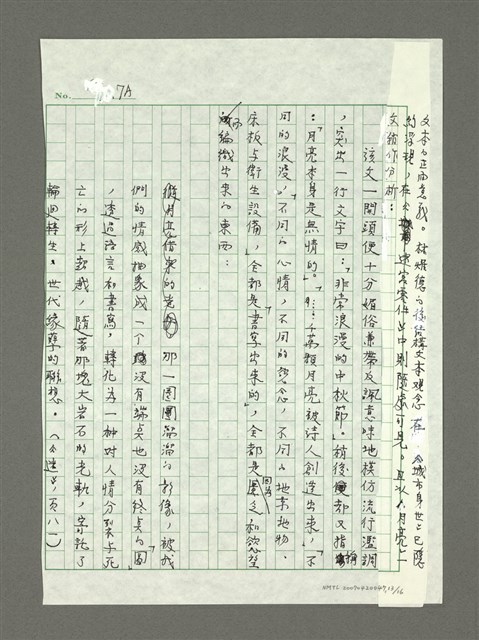 No. 7A
文本的正面意義。林燿德的後結構文本觀念在《城市身世》已隱
約浮現，在《迷宮零件》中則隨處可見。且以〈月亮〉一
文稍作分析：
該文一開頭便十分媚俗兼帶反諷意味地模仿流行濫調
，突出一行文字曰：「非常浪漫的中秋節。」稍後卻又指稱
：「月亮本身是無情的。」「千萬顆月亮被詩人創造出來」，「不
同的浪漫」，不同的心情，不同的概念，不同的地景地物、
床板與衛生設備，「全都是書寫出來的」，全都是因為匱乏和慾望
而編織出來的東西：
那一團圓溜溜的影像，被我
們的情感抽象成一個沒有端點也沒有終點的「圓」
，透過語言和書寫，轉化為一種對人情分裂與死
亡的形上超越，隨著那塊大岩石的老軌，寄託了
輪迴轉生、世代緣孽的聯想。（《迷》，頁八一）
NMTL 20070420447 13/16